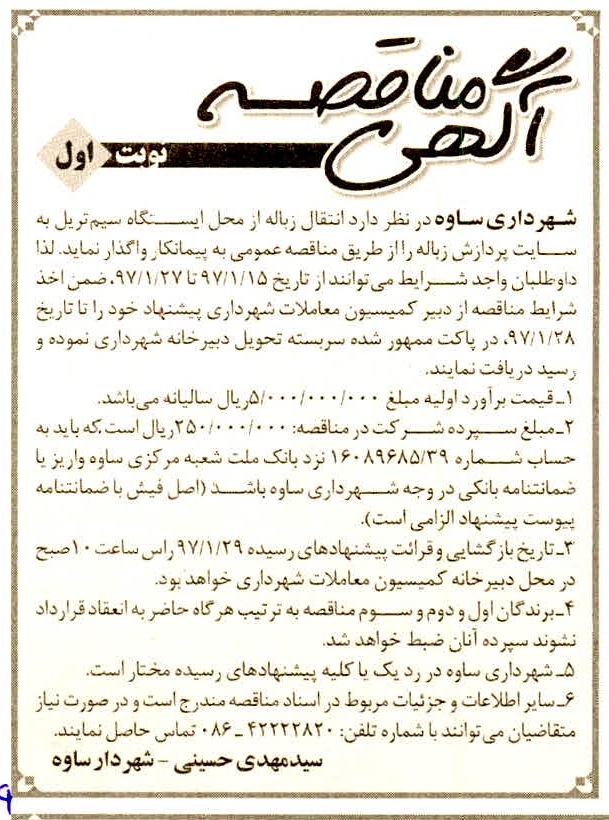 آگهی مناقصه
نوبت اول
شهرداری ساوه در نظر دارد انتقال زباله از محل ایستگاه سیم‌تریل به
سایت پردازش زباله را از طریق مناقصه عمومی به پیمانکار واگذار نماید. لذا
داوطلبان واجد شرایط می‌توانند از تاریخ ۹۷/۱/۱۵ تا ۹۷/۱/۲۷، ضمن اخذ
شرایط مناقصه از دبیر کمیسیون معاملات شهرداری پیشنهاد خود را تا تاریخ
۹۷/۱/۲۸، در پاکت ممهور شده سربسته تحویل دبیرخانه شهرداری نموده و
رسید دریافت نمایند.
۱ـ قیمت برآورد اولیه مبلغ ۵/۰۰۰/۰۰۰/۰۰۰ریال سالیانه می‌باشد.
۲ـ مبلغ سپرده شرکت در مناقصه: ۲۵۰/۰۰۰/۰۰۰ریال است، که باید به
حساب شماره ۱۶۰۸۹۶۸۵/۳۹ نزد بانک ملت شعبه مرکزی ساوه واریز یا
ضمانتنامه بانکی در وجه شهرداری ساوه باشد (اصل فیش یا ضمانتنامه
پیوست پیشنهاد الزامی است).
۳ـ تاریخ بازگشایی و قرائت پیشنهادهای رسیده ۹۷/۱/۲۹ راس ساعت ۱۰صبح
در محل دبیرخانه کمیسیون معاملات شهرداری خواهد بود.
۴ـ برندگان اول و دوم و سوم مناقصه به ترتیب هرگاه حاضر به انعقاد قرارداد
نشوند سپرده آنان ضبط خواهد شد.
۵ـ شهرداری ساوه در رد یک یا کلیه پیشنهادهای رسیده مختار است.
۶ـ سایر اطلاعات و جزئیات مربوط در اسناد مناقصه مندرج است و در صورت نیاز
متقاضیان می‌توانند با شماره تلفن: ۴۲۲۲۲۸۲۰ ـ ۰۸۶ تماس حاصل نمایند.
سیدمهدی حسینی - شهردار ساوه